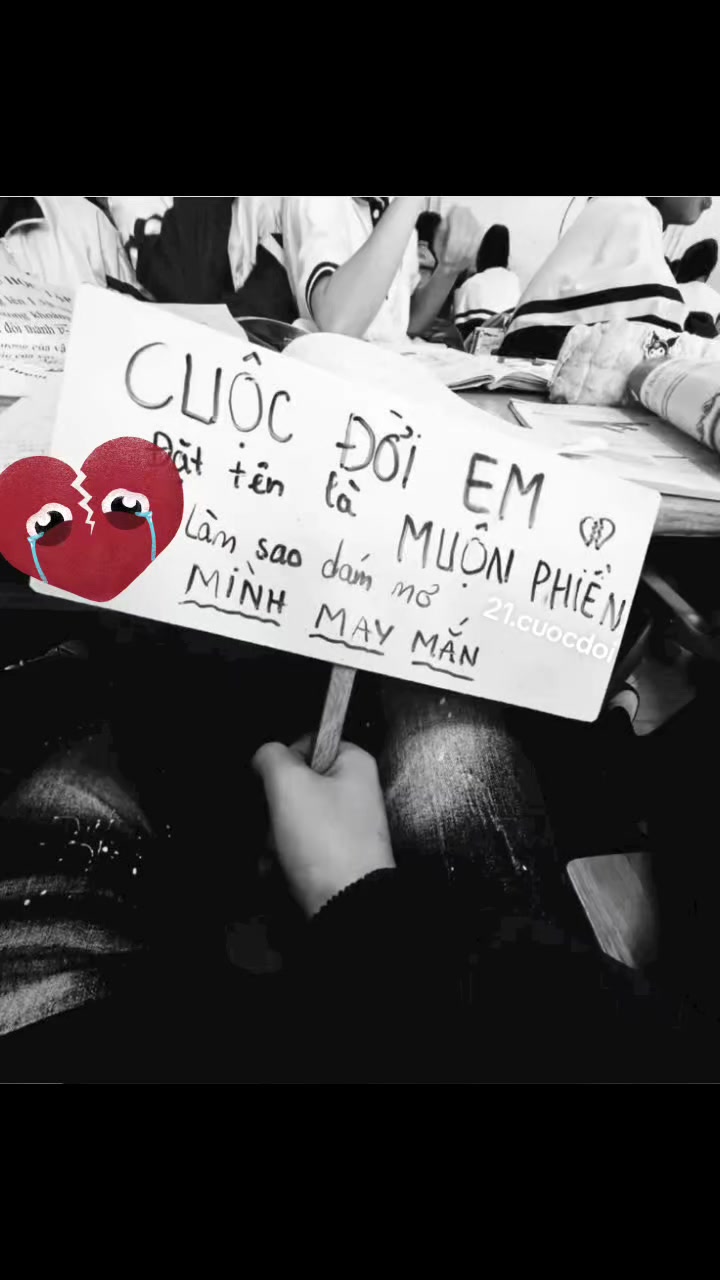 CUỘC ĐỜI EM
Đặt tên là MUỘN PHIỀN
Làm sao dám mơ
MÌNH MAY MẮN
21.cuocdoi